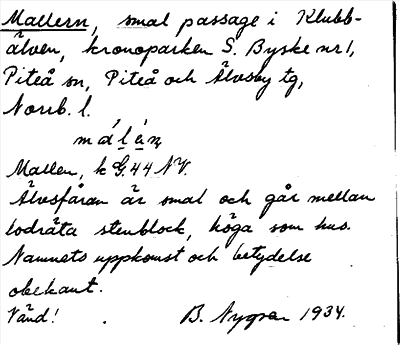 Mallern, smal passage i Klubb-
älven, kronoparken S. Byske nr 1,
Piteå sn, Piteå och Älvsby tg,
Norrb. l.
Mallen, k G. 44 NV.
Älvsfåran är smal och går mellan
lodräta stenblock, höga som hus.
Namnets uppkomst och betydelse
obekant.
Vänd! B. Nygren 1934.